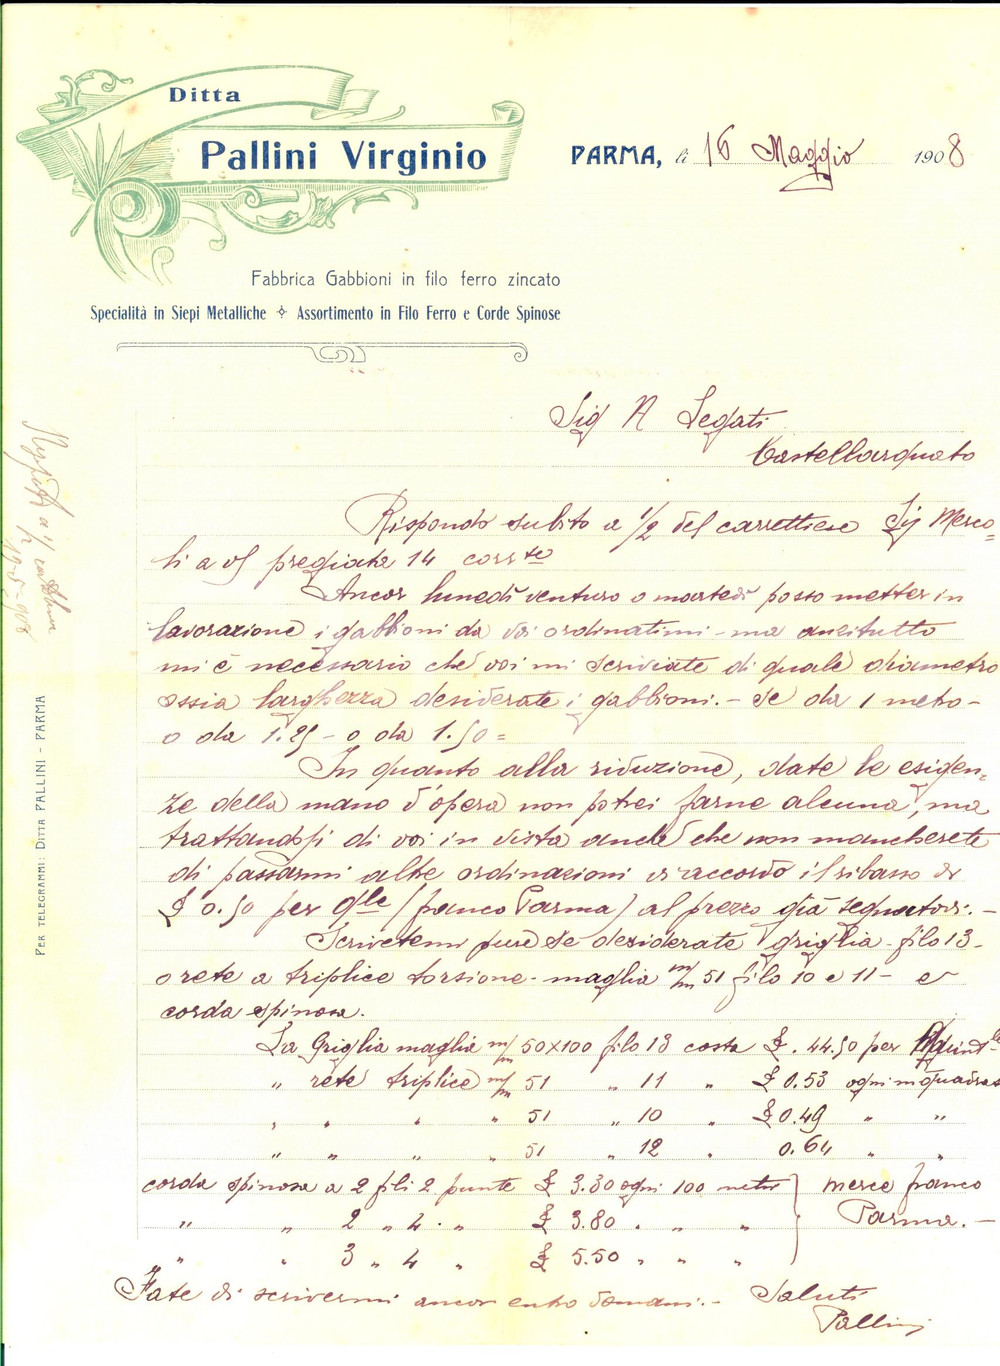 Ditta
Pallini Virginio
PARMA, li 16 Maggio 1908
Fabbrica Gabbioni in filo ferro zincato
Specialità in Siepi Metalliche Assortimento in Filo Ferro e Corde Spinose
Sig A Segati
Castellarquato
Rispondo subito a 1/2 del carrettiere Sig Merco=
li a vs pregiata 14 corrte
Ancor lunedì venturo o martedi posso metter in
lavorazione i gabbioni da voi ordinatimi - ma anzitutto
mi è necessario che voi mi scriviate di quale diametro
ossia larghezza desiderate i gabbioni. - Se da 1 metro -
o da 1.25 - o da 1.50 =
In quanto alla riduzione, date le esigen=
ze della mano d'opera non potrei farne alcuna, ma
trattandosi di voi in vista anche che non mancherete
di passarmi altre ordinazioni vi accordo il ribasso di
£ 0.50 per qle (franco Parma) al prezzo già segnatovi. -
Scrivetemi pure se desiderate griglia - filo 13 -
o rete a triplice torsione - maglia m/m 51 filo 10 e 11 - e
corda spinosa.
La Griglia maglia m/m 50x100 filo 13 costa £. 44.50 per quintle
" rete triplice m/m 51 " 11 " £ 0.53 ogni m quadrato
" " " " 51 " 10 " £ 0.49 " "
" " " " 51 " 12 " 0.64 " "
corda spinosa a 2 fili 2 punte £ 3.30 ogni 100 metri merce franco
" " 2 " 4 " £ 3.80 " " " Parma. -
" " 3 " 4 " £ 5.50 " " "
Fate di scrivermi ancor entro domani. - Saluti
Pallini
PER TELEGRAMMI: DITTA PALLINI - PARMA